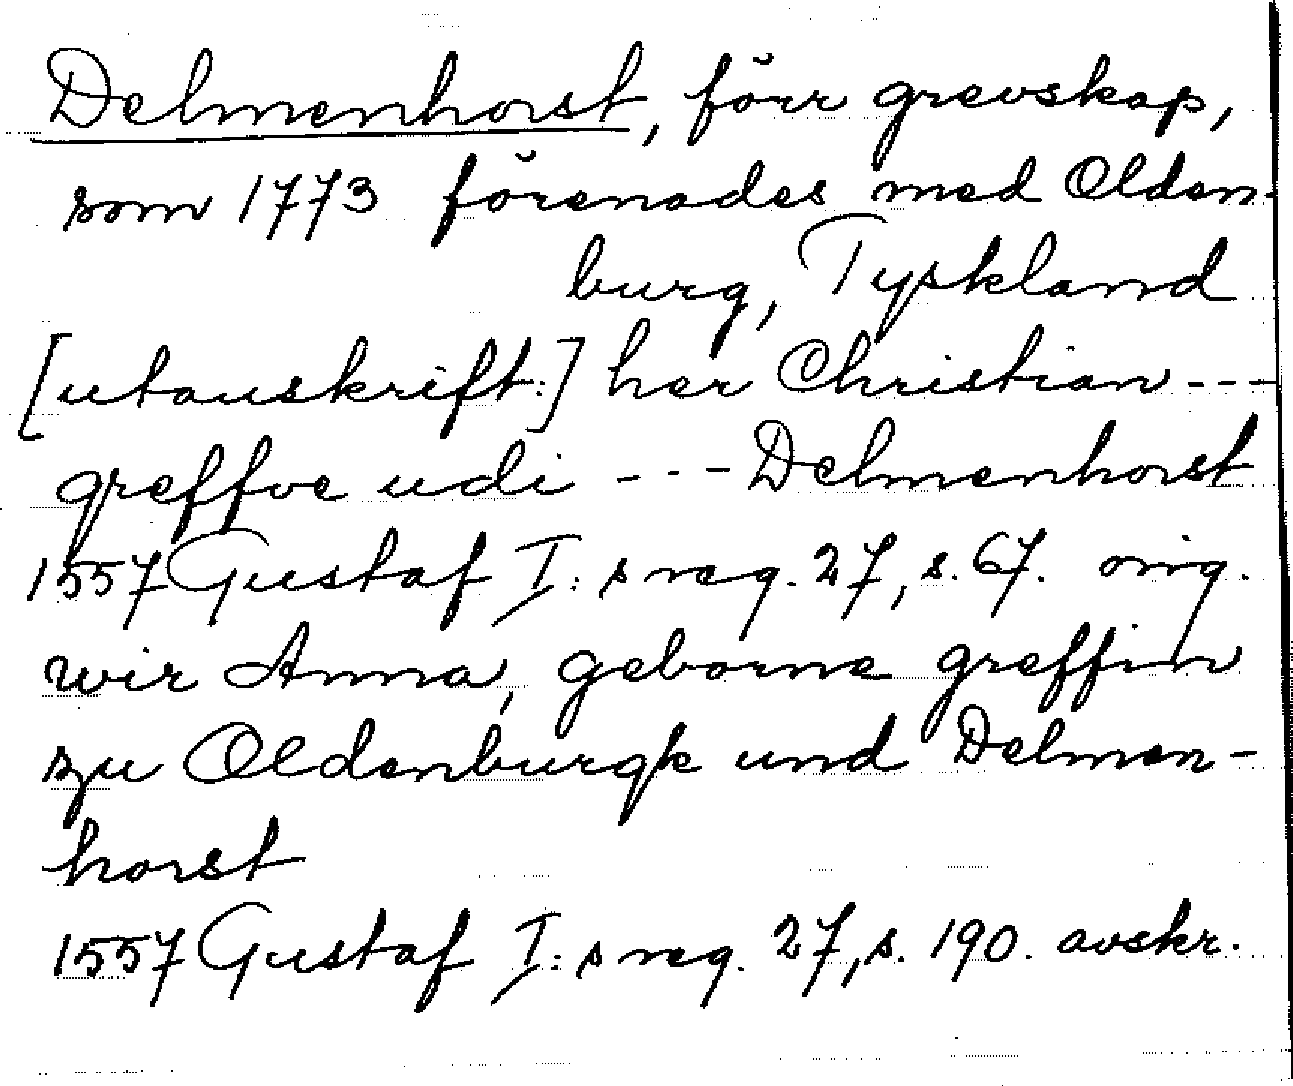 Delmenhorst, förr grevskap,
som 1773 förenades med Olden-
burg, Tyskland
[utanskrift:] her Christian ---
greffve udi --- Delmenhorst
1557 Gustaf I: s reg. 27, s. 67. orig.
wir Anna, geborne greffin
zu Oldenburgk und Delmen-
horst
1557 Gustaf I: s reg. 27, s. 190. avskr.